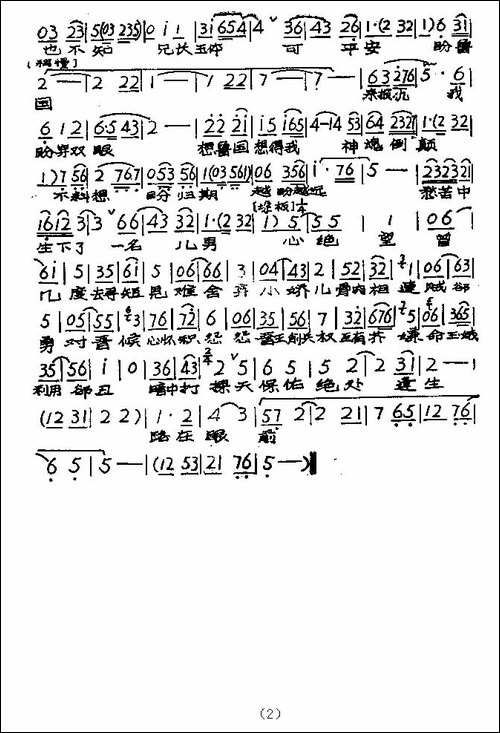 03 23 | 5(03 235) | 0 i 1 | 3i 654 | 4 ˅ 36 | 43 26 | 1·(2 32 | 1) 6 31 |
也不知 兄长玉体 可 平安 盼鲁
[稍慢]
2 — 2 22 | 1 — 1 22 | 7 — — 7 — — | 63 276 | 5 · 6 |
国 来报沉 我
6 12 | 6·5 43 | 2 — — | 22 21 | i5 i65 | 4—14 53 | 64 2327 | 1·(2 32 |
盼穿双眼 想鲁国想得我 神魂倒颠
1) 7 56 | 2 767 | 053 56 | 1(03 561) | 06 356 | i· 76 | 5 — | 2323 21 |
不料想 盼归期 越盼越远 愁苦中
[垛板]
1612 3 | 3 ˅ 66 | 43 32 | 1·(2 32 | 1) 5 | 5 5 | 1 | 1 | 06 |
生下了 一名 儿男 心绝望 曾
6i | 5 | 35 | 6i | 5 | 06 | 66 | 3 | 04 | 43 | 2 | 52 | 32 | 1 | 06 | 63 |
几度去寻短见难舍弃小娇儿骨肉相连贼却
5 | 05 | 55 | 3 | 76 | 72 | 6 | 06 | 35 | 56 | 7 | 32 | 676 | 5 | 06 | 365 |
勇对晋候心怀积怨 晋王削夫权 嫌命王娥
35 | 56 | i | 0 | 36 | 43 | 2 ˅ | 5 | 6 | 5 | 5 | 2 | 2 | 31 | 2 — |
利用郤丑 暗中打探天保佑绝处逢生
(12 31 | 2 2) | 1· 2 | 4 3 | 57 2 | 2 21 | 7 65 | 12 76 |
路在眼前
6 5 | 5 — | (12 53 | 21 76 | 5 —)
(2)